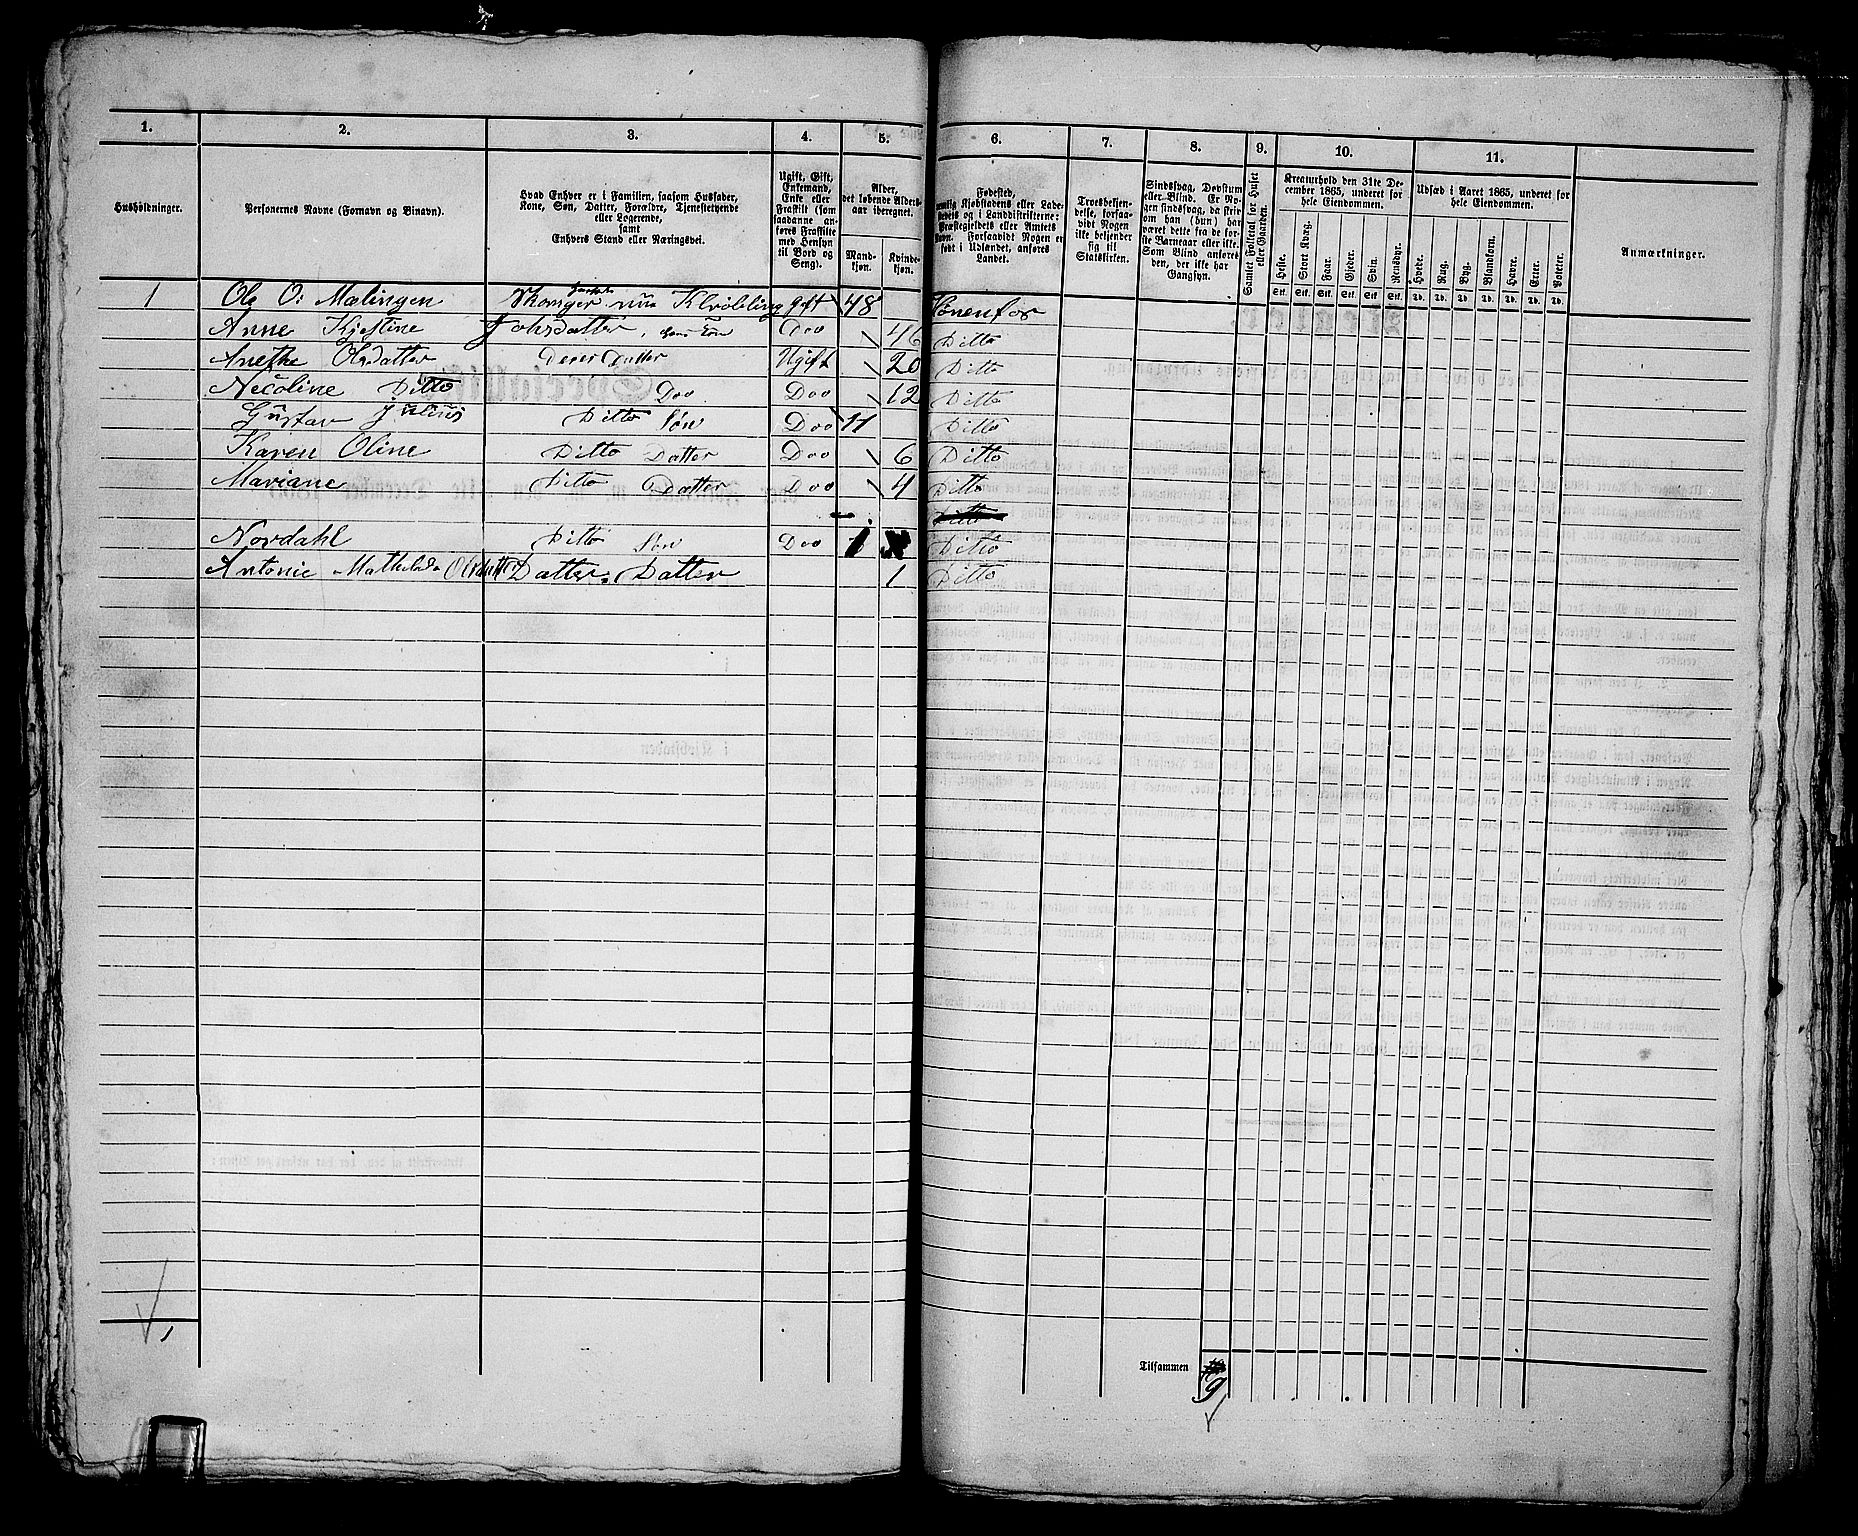 1. 2. 3. 4. 5. 6. 7. 8. 9. 10. 11.
Husholdninger.
Personernes Navne (Fornavn og Binavn).
Hvad Enhver er i Familien, saasom Husfader,
Kone, Søn, Datter, Forældre, Tjenestetyende
eller Logerende,
samt
Enhvers Stand eller Næringsvei.
Ugift, Gift,
Enkemand,
Enke eller
Fraskilt (som
saadanne an-
føres Fraskilte
med Hensyn
til Bord og
Seng).
Alder,
det løbende Alders-
aar iberegnet.
Mand-
kjøn.
Kvinde-
kjøn.
Fødested,
nemlig Kjøbstadens eller Lade-
stedets og i Landdistrikterne:
Præstegjeldets eller Amtets
Navn. Forsaavidt Nogen er
født i Udlandet, anføres
Landet.
Troesbekjen-
delse, forsaa-
vidt Nogen
ikke bekjender
sig til
Statskirken.
Sindssvag, Døvstum
eller Blind. Er No-
gen sindssvag, da skri-
ves om han (hun) har
været dette fra de før-
ste Barneaar eller ikke.
Som Blind anføres
den, der ikke har
Gangsyn.
Samlet Folketal for Huset
eller Gaarden.
Kreaturhold den 31te De-
cember 1865, underet for
hele Eiendommen.
Heste. Stort Kvæg. Faar. Gjeder. Svin. Rensdyr.
Stk. Stk. Stk. Stk. Stk. Stk.
Udsæd i Aaret 1865, underet for
hele Eiendommen.
Hvede. Rug. Byg. Blandkorn. Havre. Erter. Poteter.
Td. Td. Td. Td. Td. Td. Td.
Anmærkninger.
1 Ole O: Mælingen gift 48 Hønenfos
Anne Kjestine Johsdatter, Doo 46 Ditto
Anethe Olsdatter Deres Datter Ugift 20 Ditto
Nicoline Ditto Doo Doo 12 Ditto
Gustav Julius Ditto Søn Doo 11 Ditto
Karen Oline Ditto Datter Doo 6 Ditto
Mariane Ditto Datter Doo 4 Ditto
Ditto
Nordahl Ditto Søn Doo 1 Ditto
Antonie Mathilda Olsdatter Datters Datter 1 Ditto
Tilsammen 9